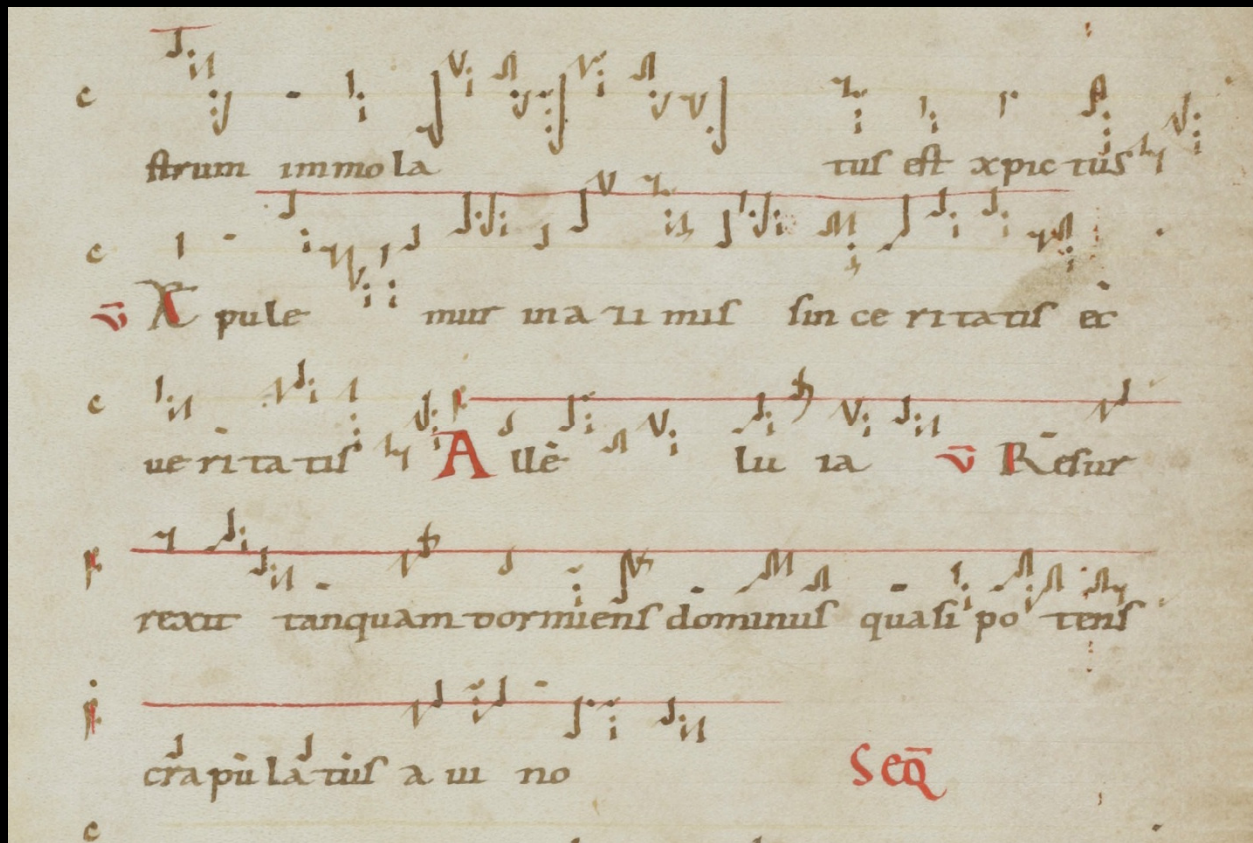 c strum immola tus est xpic tus
c v̄ X pule mur in a zi mis sin ce ritatis et
c ueritatis Alle lu ia v̄ Resur
f rexit tanquam dormiens dominus quasi po tens
f crapulatus a ui no Seq̄
c